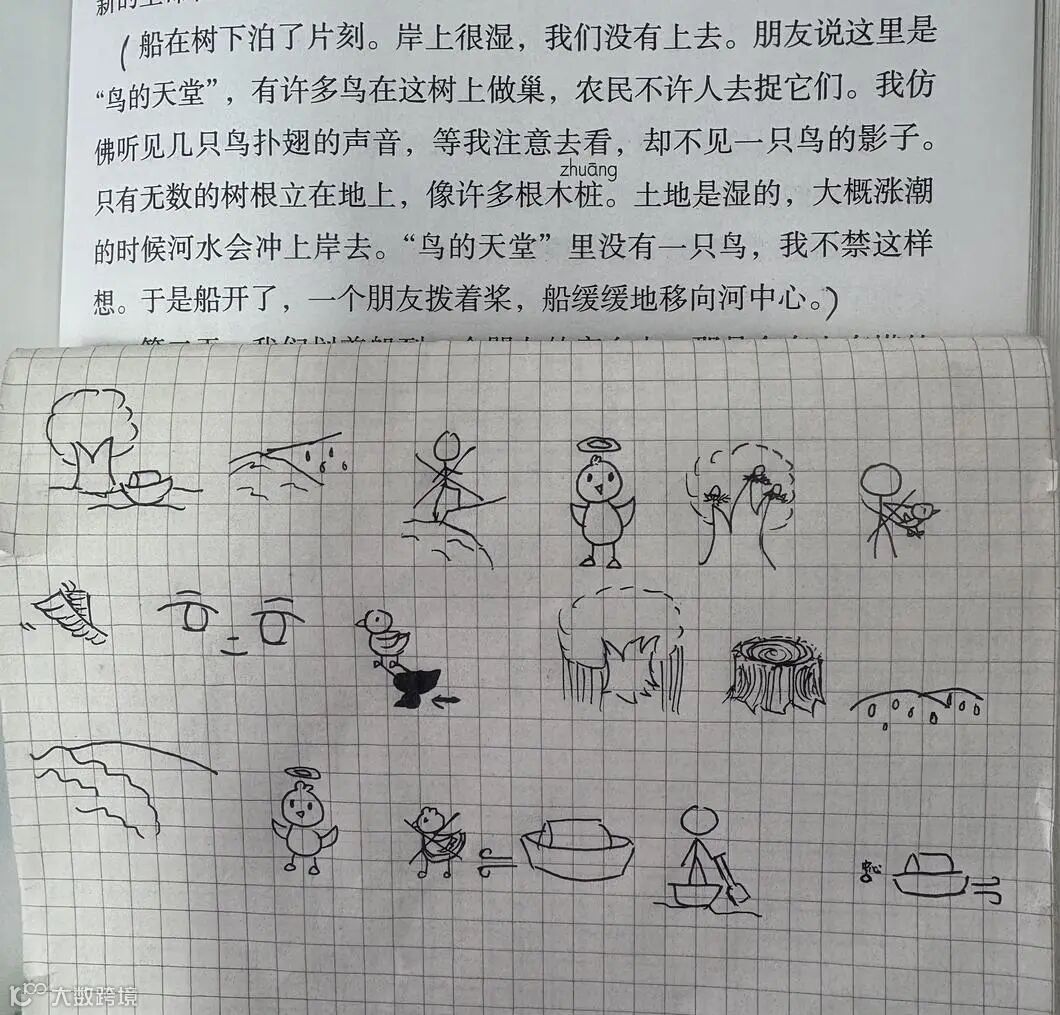 (船在树下泊了片刻。岸上很湿，我们没有上去。朋友说这里是
“鸟的天堂”，有许多鸟在这树上做巢，农民不许人去捉它们。我仿
佛听见几只鸟扑翅的声音，等我注意去看，却不见一只鸟的影子。
zhuāng
只有无数的树根立在地上，像许多根木桩。土地是湿的，大概涨潮
的时候河水会冲上岸去。“鸟的天堂”里没有一只鸟，我不禁这样
想。于是船开了，一个朋友拨着桨，船缓缓地移向河中心。)
大数跨境